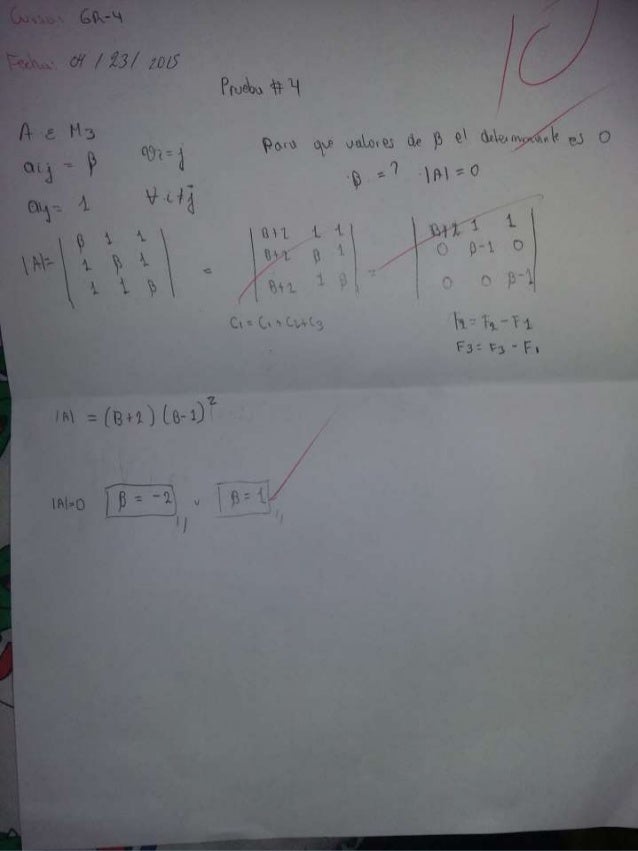 Curso: GR-4
Fecha: 04 / 23 / 2015
10
Prueba # 4
A ε M3
aij = β ∀i=j
aij = 1 ∀ i≠j
Para que valores de β el determinante es 0
β = ? |A| = 0
|A|= | β 1 1 | = | B+2 1 1 | = | B+2 1 1 |
| 1 β 1 | | B+2 β 1 | | 0 β-1 0 |
| 1 1 β | | B+2 1 β | | 0 0 β-1 |
C1 = C1 + C2 + C3
F2 = F2 - F1
F3 = F3 - F1
|A| = (B+2) (B-1)²
|A|=0 β = -2 v β = 1